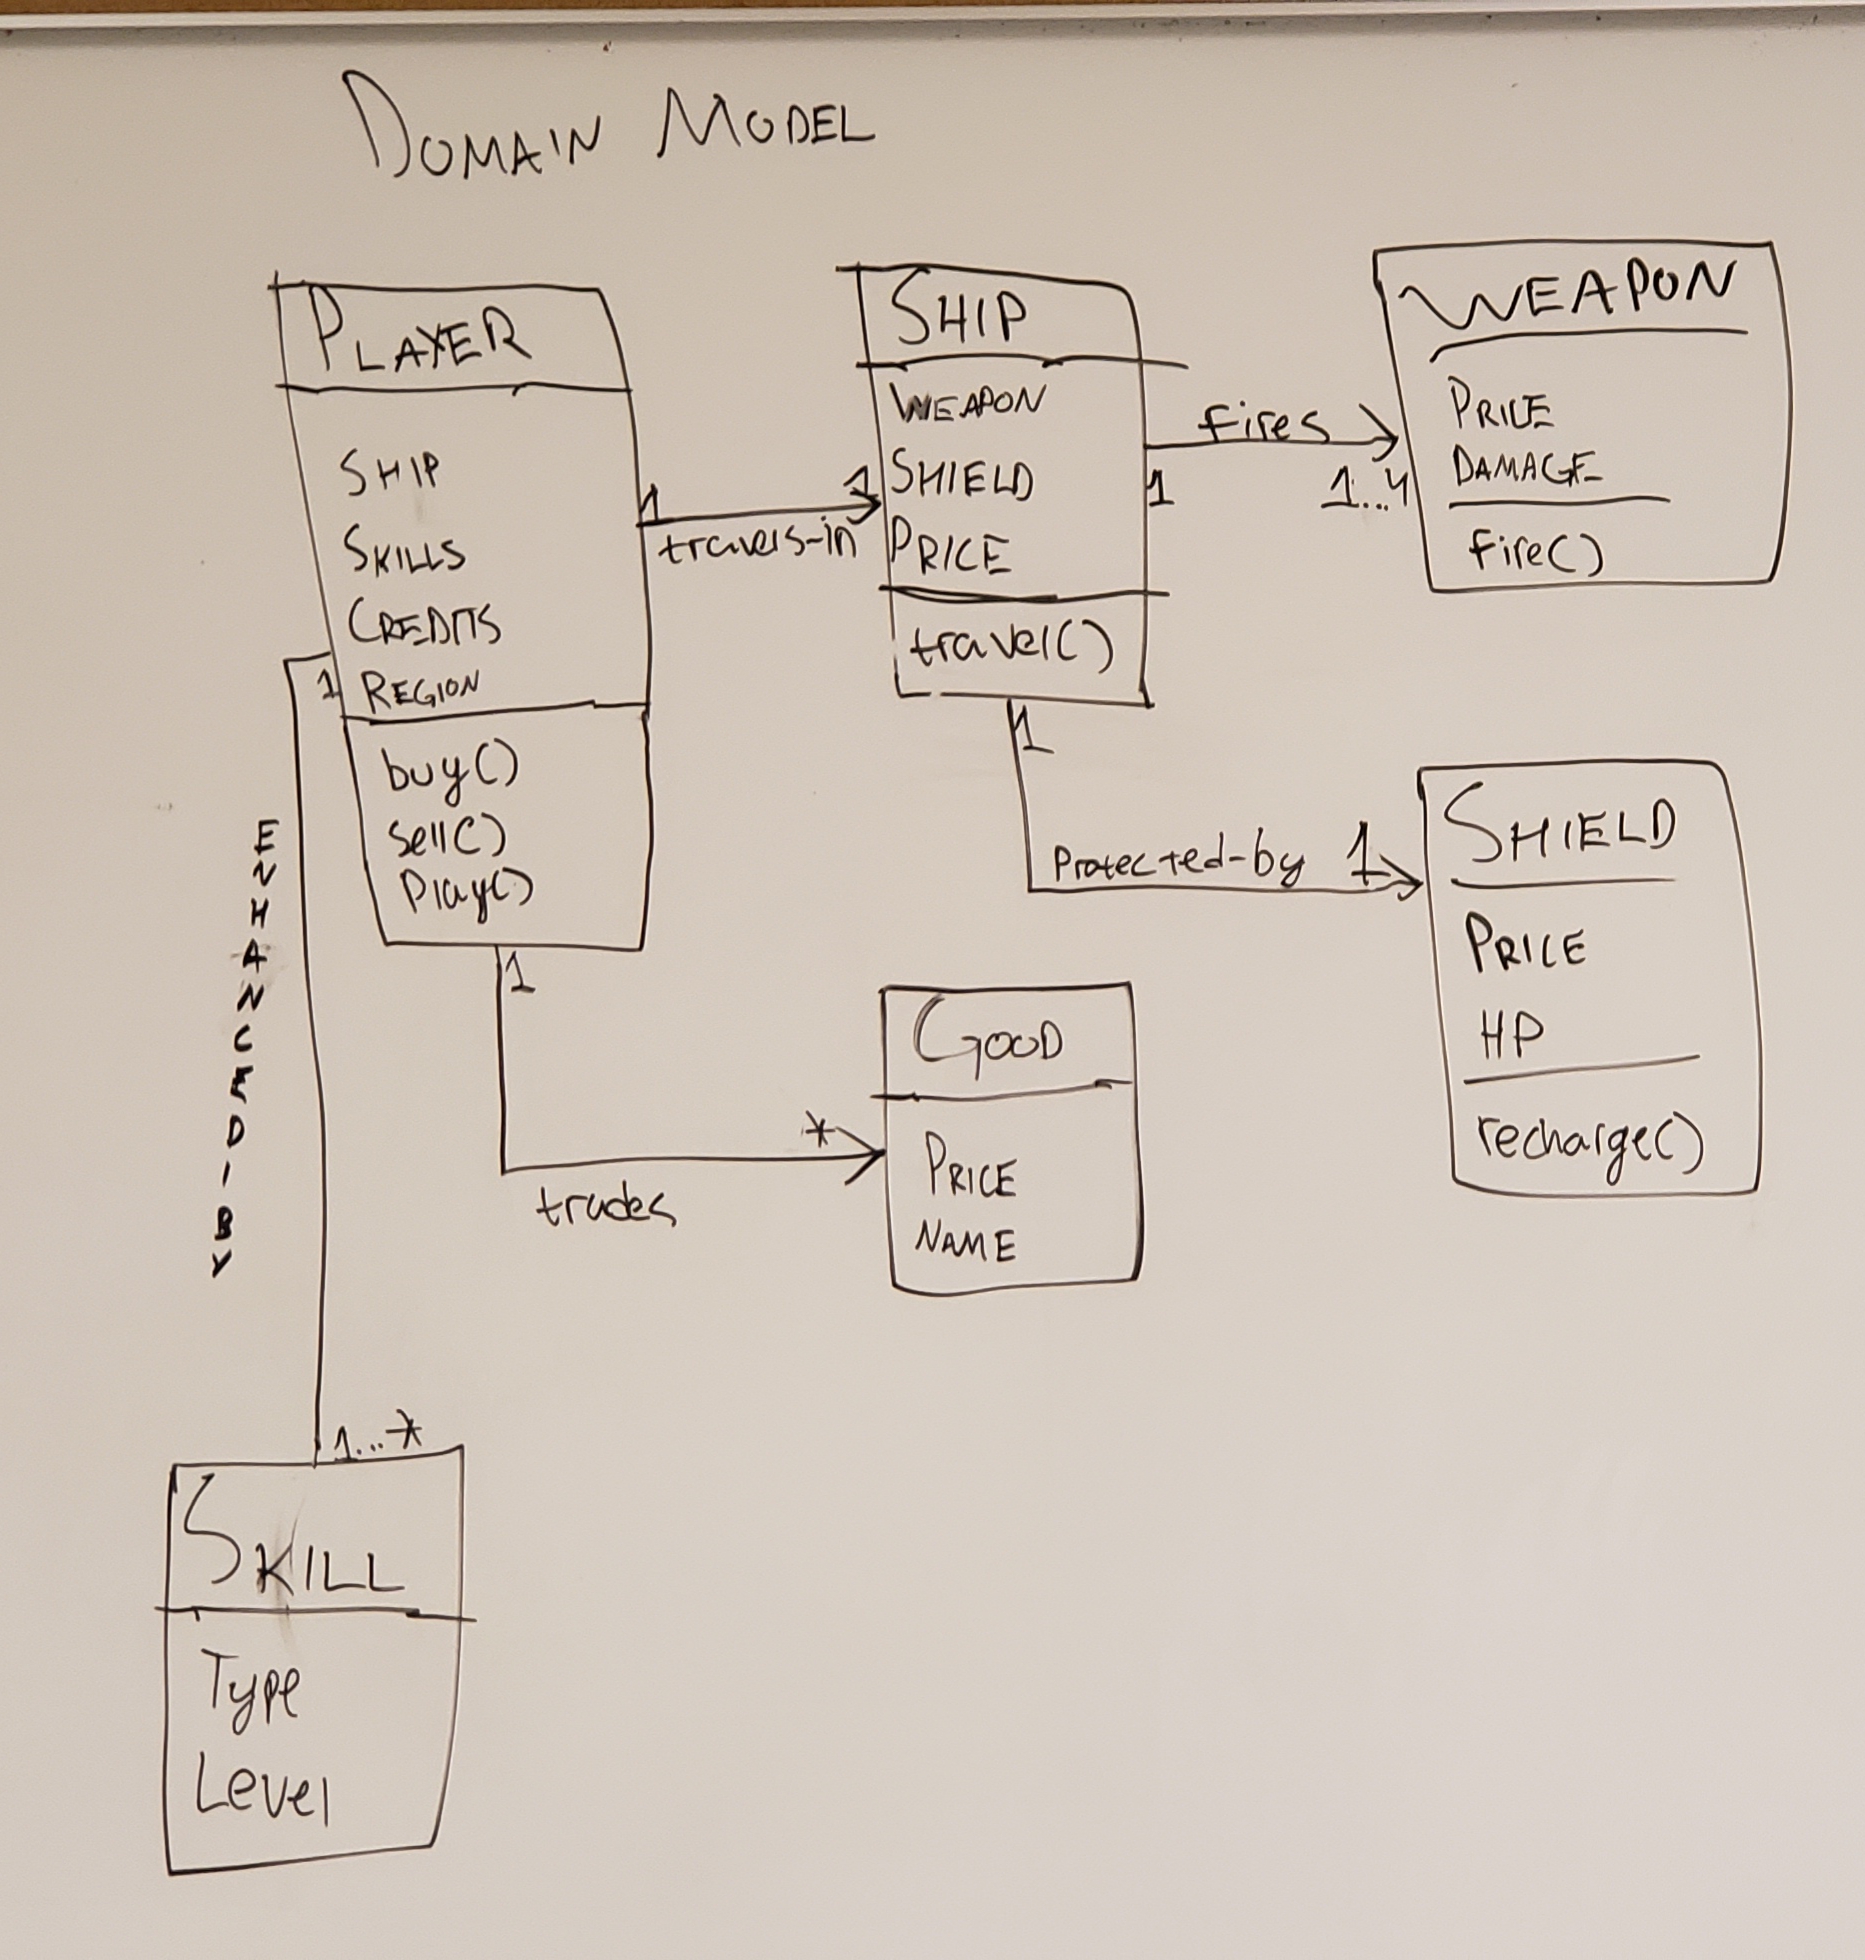 DOMAIN MODEL
PLAYER
SHIP
SKILLS
CREDITS
REGION
buy()
sell()
Play()
1
travels-in
1
SHIP
WEAPON
SHIELD
PRICE
travel()
Fires
1
1...4
WEAPON
PRICE
DAMAGE
Fire()
1
Protected-by 1
SHIELD
PRICE
HP
recharge()
1
trades
*
GOOD
PRICE
NAME
1
ENHANCED-BY
1...*
SKILL
Type
Level